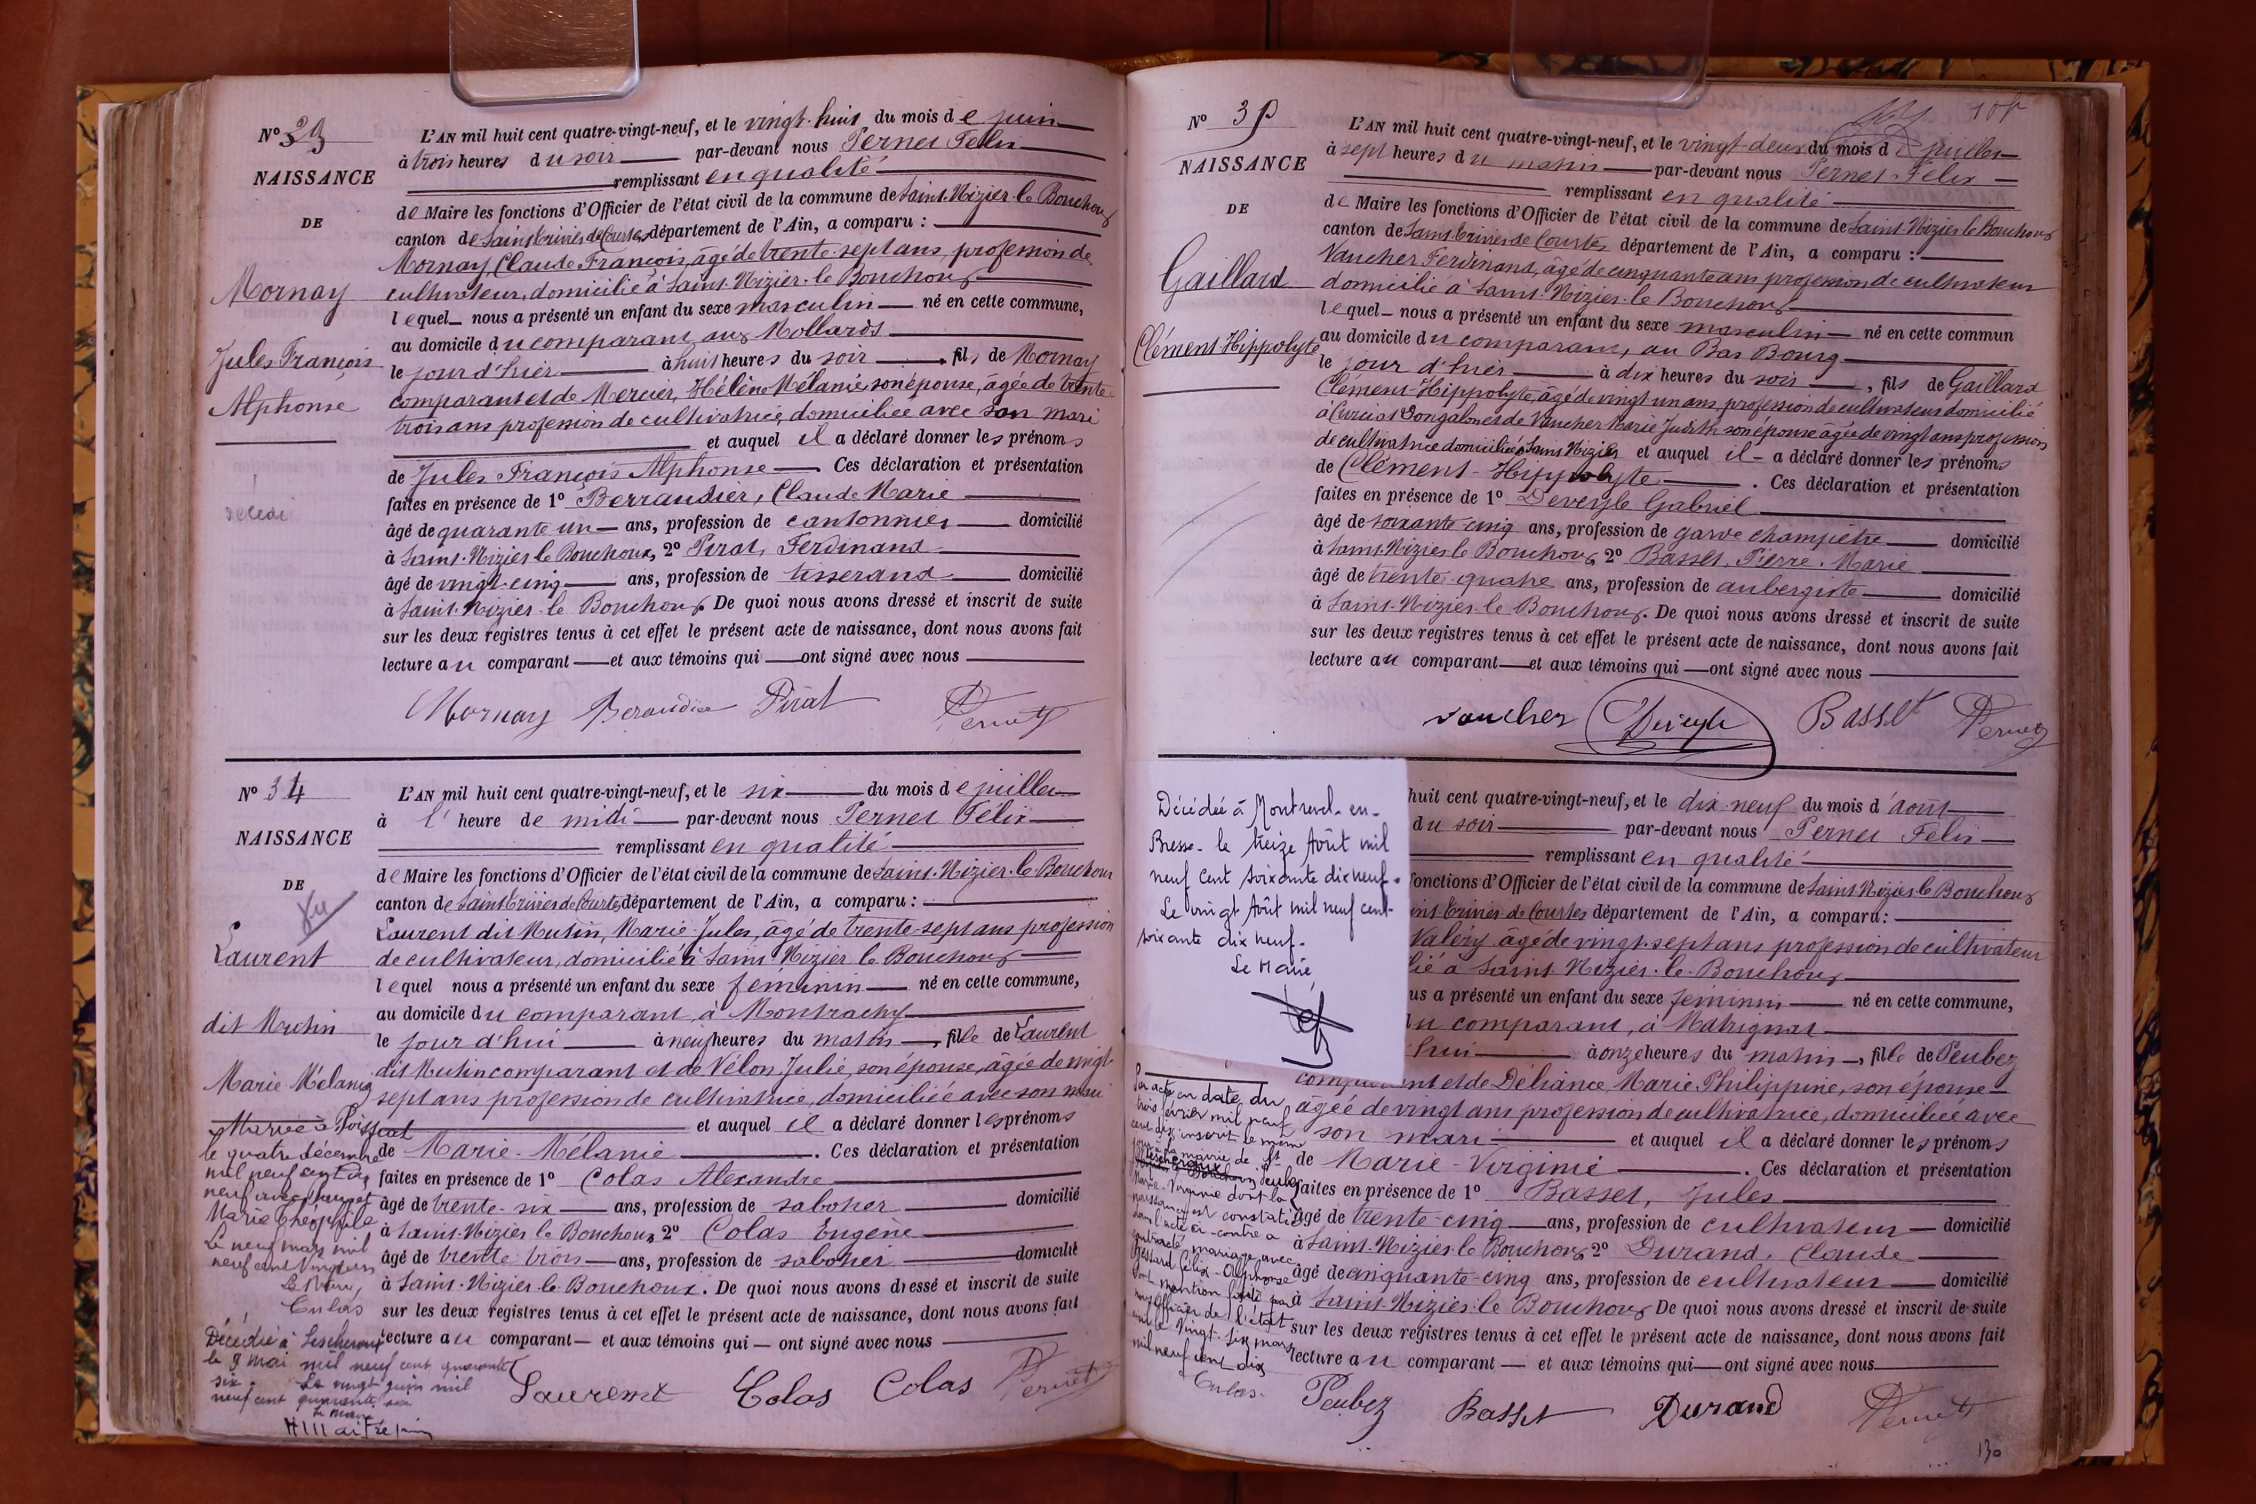 N° 33
NAISSANCE
DE
Mornay
Jules François
Alphonse
décédé
L'AN mil huit cent quatre-vingt-neuf, et le vingt-huit du mois de juin
à trois heures du soir par-devant nous Pernet Félix
remplissant en qualité
de Maire les fonctions d'Officier de l'état civil de la commune de Saint-Nizier-le-Bouchoux
canton de Saint Trivier de Courtes département de l'Ain, a comparu :
Mornay Claude François, âgé de trente-sept ans, profession de
cultivateur, domicilié à Saint-Nizier-le-Bouchoux
lequel nous a présenté un enfant du sexe masculin né en cette commune,
au domicile du comparant, aux Mollards
le jour d'hier à huit heures du soir, fils de Mornay
comparant et de Mercier, Hélène Mélanie, son épouse, âgée de trente
trois ans profession de cultivatrice, domiciliée avec son mari
et auquel il a déclaré donner les prénoms
de Jules François Alphonse. Ces déclaration et présentation
faites en présence de 1° Berraudier, Claude Marie
âgé de quarante un ans, profession de cantonnier domicilié
à Saint-Nizier le Bouchoux, 2° Pirat, Ferdinand
âgé de vingt-cinq ans, profession de tisserand domicilié
à Saint-Nizier-le-Bouchoux. De quoi nous avons dressé et inscrit de suite
sur les deux registres tenus à cet effet le présent acte de naissance, dont nous avons fait
lecture au comparant et aux témoins qui ont signé avec nous
Mornay Beraudier Pirat Pernet
N° 34
NAISSANCE
DE
Laurent
dit Mutin
Marie Mélanie
Mariée à
le quatre décembre
mil neuf cent dix
neuf avec
Marie Théophile
Le neuf mars mil
neuf cent vingt un
Le Maire,
Colas
Décédée à Lescheroux
le 9 mai mil neuf cent quarante
six. Le vingt juin mil
neuf cent quarante six
Le Maire
L'AN mil huit cent quatre-vingt-neuf, et le six du mois de juillet
à l'heure de midi par-devant nous Pernet Félix
remplissant en qualité
de Maire les fonctions d'Officier de l'état civil de la commune de Saint-Nizier-le-Bouchoux
canton de Saint Trivier de Courtes département de l'Ain, a comparu :
Laurent dit Mutin, Marie-Jules, âgé de trente-sept ans profession
de cultivateur, domicilié à Saint-Nizier le Bouchoux
lequel nous a présenté un enfant du sexe féminin né en cette commune,
au domicile du comparant, à Montrachy
le jour d'hui à neuf heures du matin, fille de Laurent
dit Mutin comparant et de Vélon Julie, son épouse, âgée de vingt
sept ans profession de cultivatrice, domiciliée avec son mari
et auquel il a déclaré donner les prénoms
de Marie-Mélanie. Ces déclaration et présentation
faites en présence de 1° Colas Alexandre
âgé de trente-six ans, profession de sabotier domicilié
à Saint-Nizier le Bouchoux 2° Colas Eugène
âgé de trente-trois ans, profession de sabotier domicilié
à Saint-Nizier-le-Bouchoux. De quoi nous avons dressé et inscrit de suite
sur les deux registres tenus à cet effet le présent acte de naissance, dont nous avons fait
lecture au comparant et aux témoins qui ont signé avec nous
Laurent Colas Colas Pernet
N° 35
NAISSANCE
DE
Gaillard
Clément-Hippolyte
L'AN mil huit cent quatre-vingt-neuf, et le vingt-deux du mois de juillet
à sept heures du matin par-devant nous Pernet Félix
remplissant en qualité
de Maire les fonctions d'Officier de l'état civil de la commune de Saint-Nizier le Bouchoux
canton de Saint Trivier de Courtes département de l'Ain, a comparu :
Vaucher Ferdinand, âgé de cinquante ans profession de cultivateur
domicilié à Saint-Nizier-le Bouchoux
lequel nous a présenté un enfant du sexe masculin né en cette commun
au domicile du comparant, au Bas Bourg
le jour d'hier à dix heures du soir, fils de Gaillard
Clément-Hippolyte, âgé de vingt un ans, profession de cultivateur domicilié
à Curciat Dongalon et de Vaucher Marie Judith son épouse âgée de vingt ans profession
de cultivatrice domiciliée à Saint Nizier et auquel il a déclaré donner les prénoms
de Clément-Hippolyte. Ces déclaration et présentation
faites en présence de 1° Deveyle Gabriel
âgé de soixante-cinq ans, profession de garde champêtre domicilié
à Saint-Nizier le Bouchoux 2° Basset, Pierre-Marie
âgé de trente-quatre ans, profession de aubergiste domicilié
à Saint-Nizier-le Bouchoux. De quoi nous avons dressé et inscrit de suite
sur les deux registres tenus à cet effet le présent acte de naissance, dont nous avons fait
lecture au comparant et aux témoins qui ont signé avec nous
Vaucher Deveyle Basset Pernet
Décédée à Montrevel-en-
Bresse le treize Août mil
neuf cent soixante dix neuf.
Le vingt Août mil neuf cent
soixante dix neuf.
Le Maire
Par acte en date du
trois février mil neuf
cent dix inscrit le même
jour à la mairie de St
Nizier le Bouchoux Peubez
Marie-Virginie dont la
naissance est constatée
dans l'acte ci-contre a
contracté mariage avec
Félix-Alphonse
Dont mention faite par
nous officier de l'état
civil le vingt-six mars
mil neuf cent dix
Colas
huit cent quatre-vingt-neuf, et le dix-neuf du mois d'août
du soir par-devant nous Pernet Félix
remplissant en qualité
fonctions d'Officier de l'état civil de la commune de Saint Nizier le Bouchoux
Saint Trivier de Courtes département de l'Ain, a comparu :
Valéry âgé de vingt-sept ans profession de cultivateur
lié à Saint-Nizier-le-Bouchoux
us a présenté un enfant du sexe féminin né en cette commune,
du comparant, à Matrignat
hui à onze heures du matin, fille de Peubez
comparant et de Déliance Marie Philippine, son épouse
âgée de vingt ans profession de cultivatrice, domiciliée avec
son mari et auquel il a déclaré donner les prénoms
de Marie-Virginie. Ces déclaration et présentation
faites en présence de 1° Basset, Jules
âgé de trente-cinq ans, profession de cultivateur domicilié
à Saint-Nizier-le-Bouchoux 2° Durand, Claude
âgé de cinquante-cinq ans, profession de cultivateur domicilié
à Saint-Nizier-le Bouchoux De quoi nous avons dressé et inscrit de suite
sur les deux registres tenus à cet effet le présent acte de naissance, dont nous avons fait
lecture au comparant et aux témoins qui ont signé avec nous
Peubez Basset Durand Pernet
130